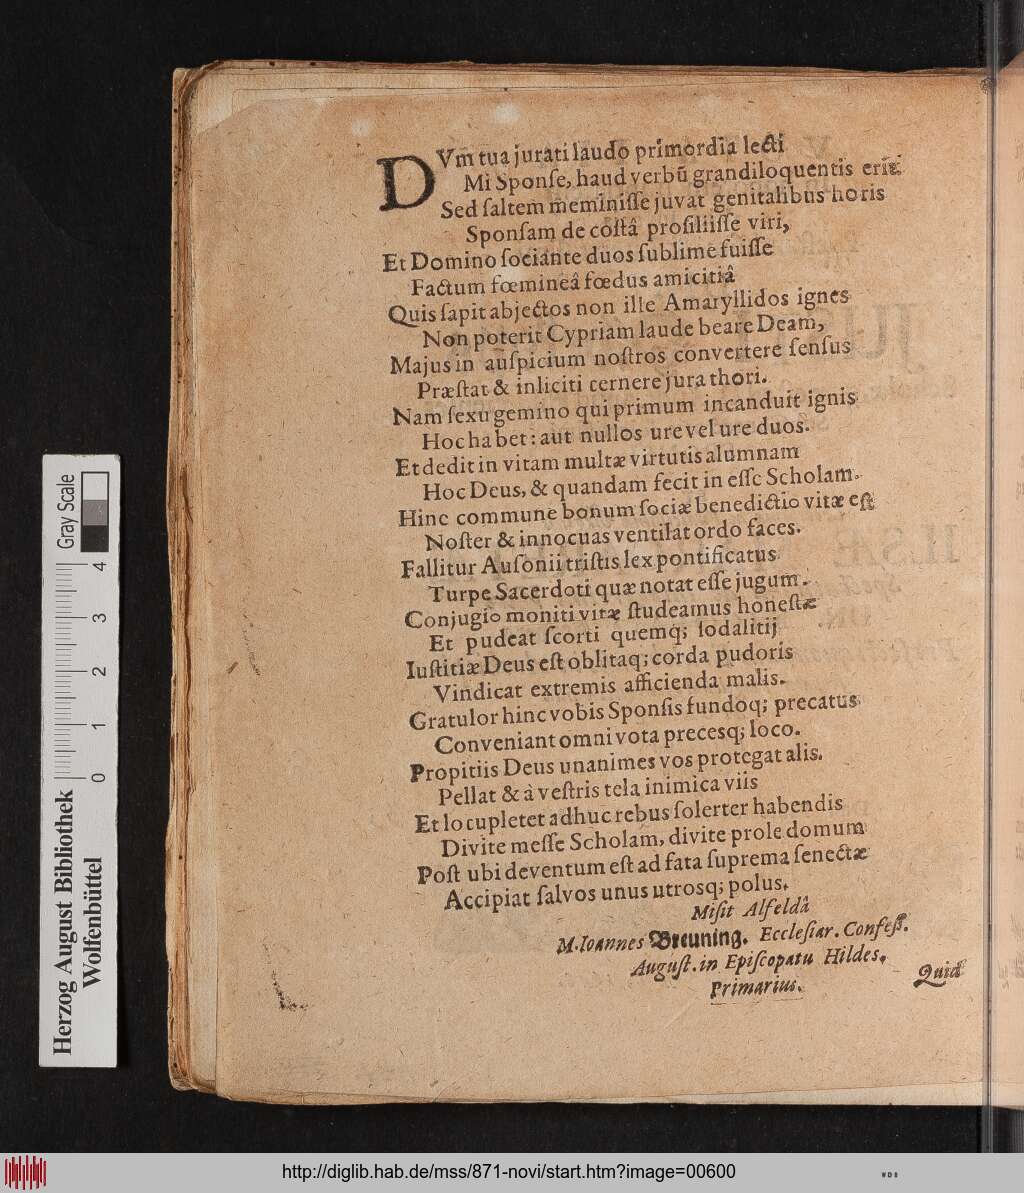 DVm tua jurati laudo primordia lecti
Mi Sponſe, haud verbũ grandiloquentis erit:
Sed ſaltem meminiſſe juvat genitalibus horis
Sponſam de coſtâ proſiliiſſe viri,
Et Domino ſociante duos ſublime fuiſſe
Factum fœmineâ fœdus amicitiâ
Quis ſapit abjectos non ille Amaryllidos ignes
Non poterit Cypriam laude beare Deam,
Majus in auſpicium noſtros convertere ſenſus
Præſtat & inliciti cernere jura thori.
Nam ſexu gemino qui primum incanduit ignis
Hoc habet: aut nullos ure vel ure duos.
Et dedit in vitam multæ virtutis alumnam
Hoc Deus, & quandam fecit in eſſe Scholam.
Hinc commune bonum ſociæ benedictio vitæ eſt
Noſter & innocuas ventilat ordo faces.
Fallitur Auſonii triſtis lex pontificatus
Turpe Sacerdoti quæ notat eſſe jugum.
Conjugio moniti vitæ ſtudeamus honeſtæ
Et pudeat ſcorti quemq; ſodalitij
Iuſtitiæ Deus eſt oblitaq; corda pudoris
Vindicat extremis afficienda malis.
Gratulor hinc vobis Sponſis fundoq; precatus
Conveniant omni vota precesq; loco.
Propitiis Deus unanimes vos protegat alis.
Pellat & à veſtris tela inimica viis
Et locupletet adhuc rebus ſolerter habendis
Divite meſſe Scholam, divite prole domum
Poſt ubi deventum eſt ad fata ſuprema ſenectæ
Accipiat ſalvos unus utrosq; polus.
Miſit Alfeldâ
M. Ioannes Breuning. Eccleſiar. Confeſſ.
Auguſt. in Epiſcopatu Hildes.
Primarius.
Quid
Herzog August Bibliothek
Wolfenbüttel
0 1 2 3 4
Gray Scale
http://diglib.hab.de/mss/871-novi/start.htm?image=00600